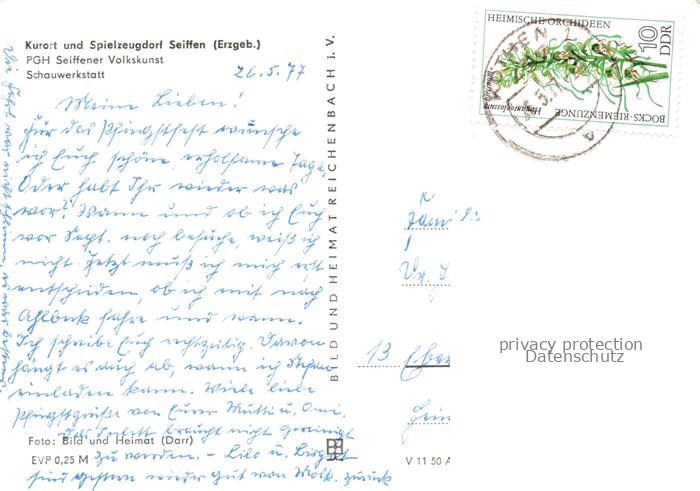 Kurort und Spielzeugdorf Seiffen (Erzgeb.)
PGH Seiffener Volkskunst
Schauwerkstatt
26.5.77
Meine Lieben!
Für das Pfingstfest wünsche
ich Euch schöne, erholsame Tage.
Oder habt Ihr wieder was
vor? Wann und ob ich Euch
vor Sept. noch besuche, weiß ich
nicht. Jetzt muß ich mich erst
entscheiden, ob ich mit nach
Ahlbeck fahre und wann.
Ich schreibe Euch rechtzeitig. Davon
hängt es auch ab, wann ich Stefan
einladen kann. Viele liebe
Pfingstgrüße von Eurer Mutti u. Omi.
das braucht nicht gereinigt
zu werden. - Lilo u. Birgit
sind gestern wieder gut von zurück
Foto: Bild und Heimat (Darr)
EVP 0,25 M
BILD UND HEIMAT REICHENBACH i. V.
V 11 50 A
HEIMISCHE ORCHIDEEN
10
DDR
BOCKS-RIEMENZUNGE
Himantoglossum
13
privacy protection
Datenschutz